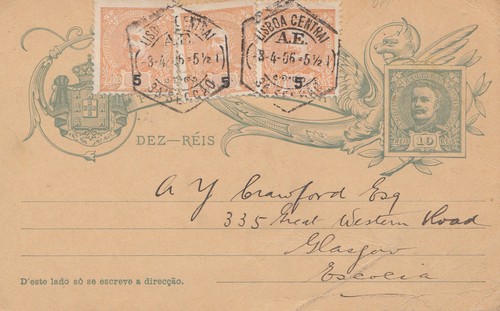 LISBOA CENTRAL
A.E.
3-4-06-5½ T
3ª SECÇÃO
5 5
LISBOA CENTRAL
A.E.
3-4-06-5½ T
3ª SECÇÃO
5
DEZ—RÉIS
10
A Y Crawford Esq
335 Great Western Road
Glasgow
Escocia
D'este lado só se escreve a direcção.